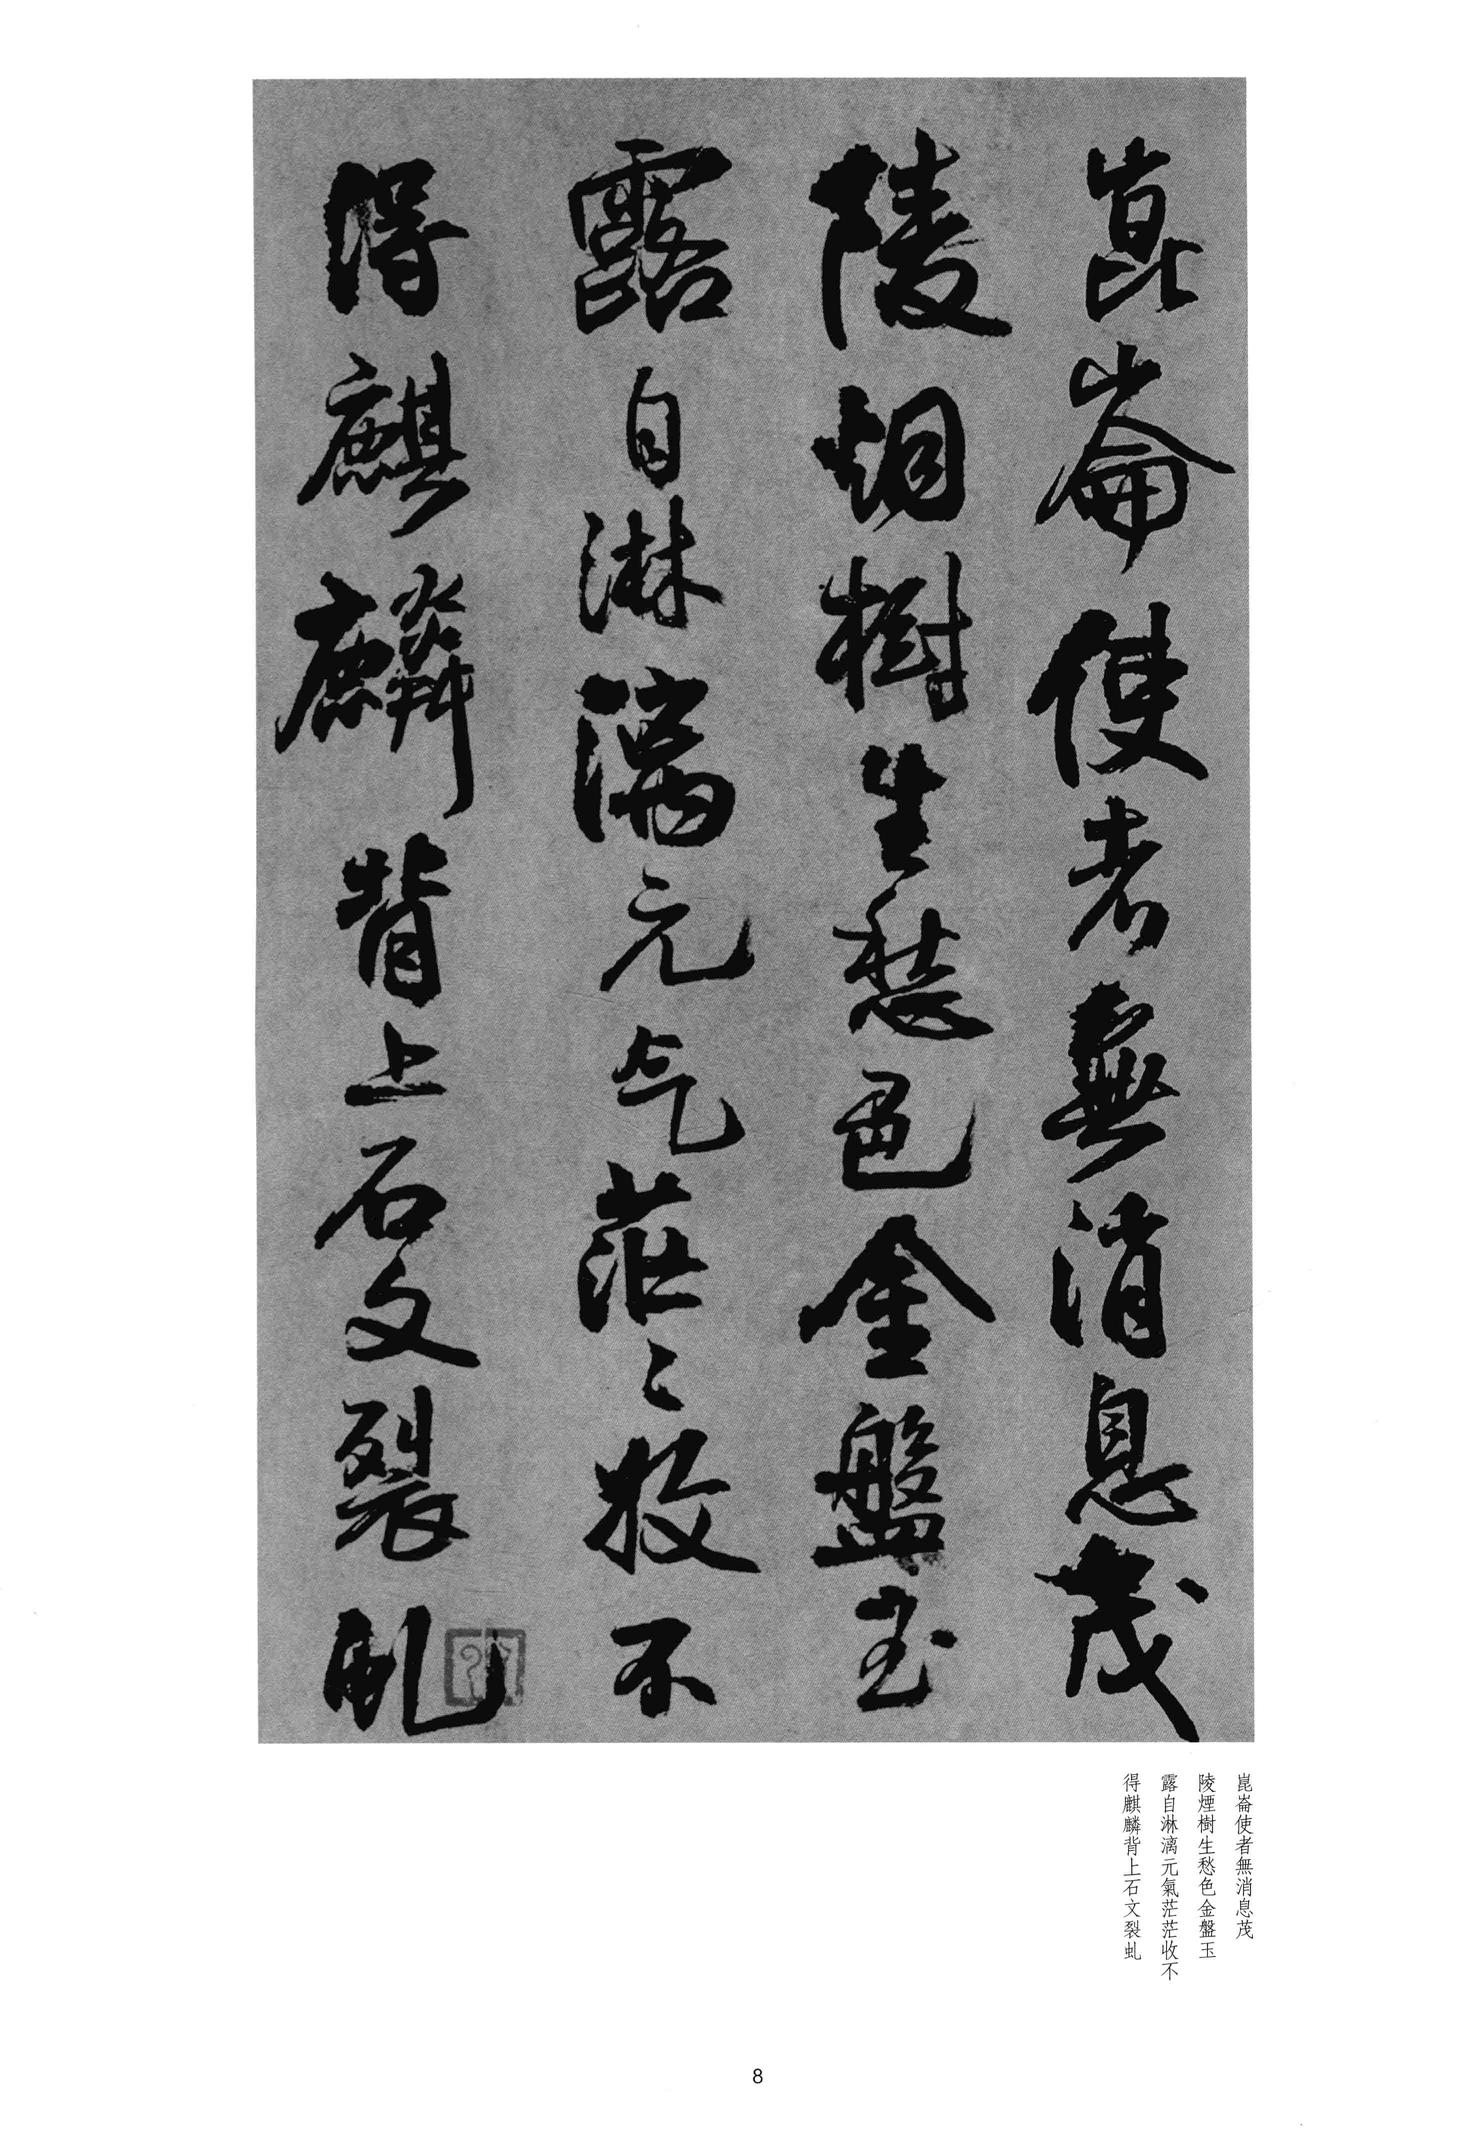 崑崙使者無消息茂
陵烟樹生愁色金盤玉
露自淋漓元气茫〻收不
得麒麟背上石文裂虬
崑崙使者無消息茂
陵煙樹生愁色金盤玉
露自淋漓元氣茫茫收不
得麒麟背上石文裂虬
8